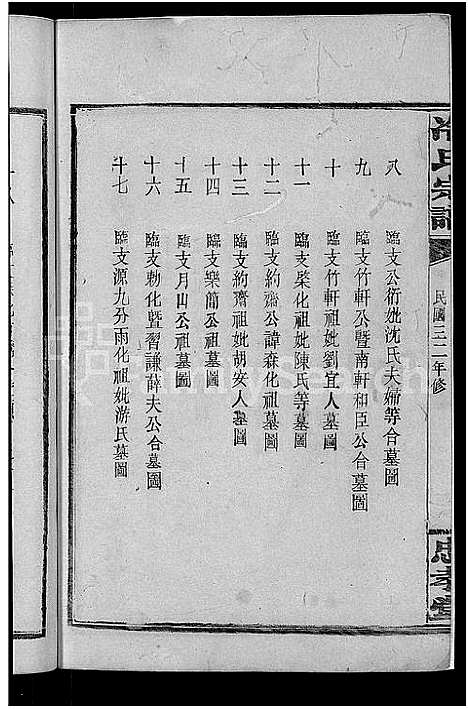 冷氏宗譜
民國三二年修
忠孝堂
八 臨支公衍妣沈氏夫婦等合墓圖
九 臨支竹軒公暨南軒和臣公合墓圖
十 臨支竹軒祖妣劉宜人墓圖
十一 臨支榘化祖妣陳氏等墓圖
十二 臨支約齋公諱森化祖墓圖
十三 臨支約齋祖妣胡安人墓圖
十四 臨支樂簡公祖墓圖
十五 臨支月山公祖墓圖
十六 臨支勅化暨習謙薛夫公合墓圖
十七 臨支源九分雨化祖妣游氏墓圖